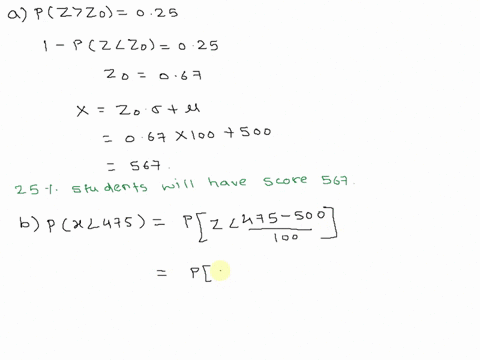 a) P(Z>Z0) = 0.25
1 - P(Z<Z0) = 0.25
Z0 = 0.67
X = Z0.σ+μ
= 0.67 X100 +500
= 567.
25% students will have score 567.
b) P(x<475) = P[Z<475-500/100]
= P[